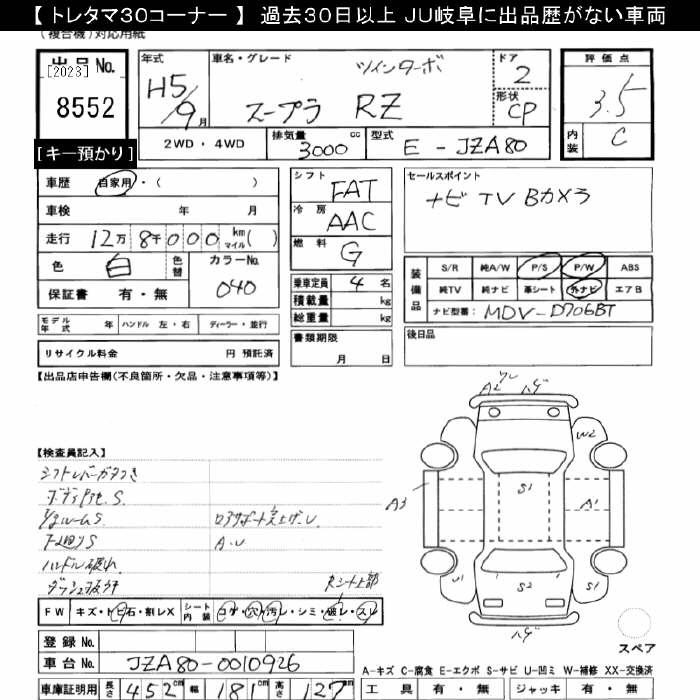 【 トレタマ30コーナー 】 過去30日以上 JU岐阜に出品歴がない車両
(複合機)対応用紙
出品No.
[2023]
8552
[キー預かり]
年式
H5/9月
車名・グレード
ツインターボ
スープラ RZ
ドア
2
形状
CP
評価点
3.5
内装
C
2WD ・ 4WD
排気量 3000 cc
型式 E - JZA80
車歴 自家用・( )
車検 年 月
走行 12万 8千 0 0 0 km マイル( )
色 白 色替 カラーNo. 040
保証書 有・無
シフト FAT
冷房 AAC
燃料 G
乗車定員 4 名
積載量 kg
総重量 kg
セールスポイント
ナビ TV Bカメラ
装備品
S/R 純A/W P/S P/W ABS
純TV 純ナビ 革シート 外ナビ エアB
ナビ型番: MDV-D706BT
モデル年式 年 ハンドル 左・右 ディーラー・並行
書類期限 月 日
後日品
リサイクル料金 円 預託済
【出品店申告欄(不良箇所・欠品・注意事項等)】
【検査員記入】
シフトレバーガタつき
S.
ルームS
下廻りS
A.U
ハルドル破れ
シート上部
A2 ハゲ
W2
S1
A3
A1
U1
S2
S1
ハゲ
FW キズ・トビ石・割レX シート内装 コゲ・穴・汚レ・シミ・破レ・スレ
登録No.
車台No. JZA80-0010926
車庫証明用 長さ 452cm 幅 181cm 高さ 127cm
スペア
A-キズ C-腐食 E-エクボ S-サビ U-凹ミ W-補修 XX-交換済
工具 有・無 ジャッキ 有・無